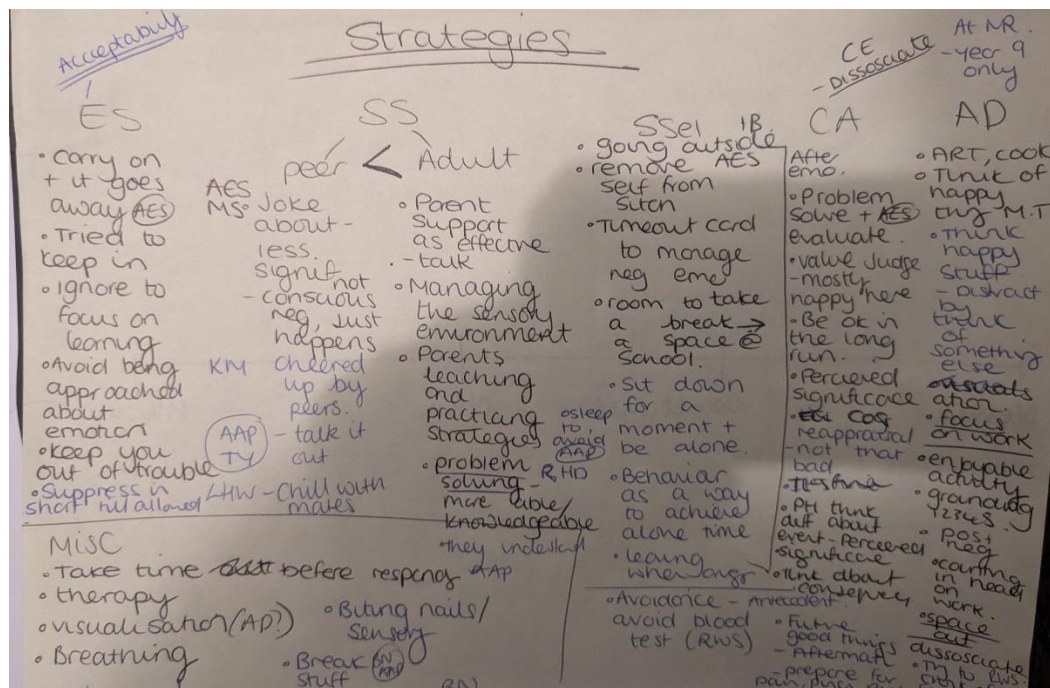 Strategies
Acceptability
ES
• Carry on
+ it goes
away AES
• Tried to
keep in
• Ignore to
focus on
learning
• Avoid being
approached
about
emotion
• Keep you
out of trouble
• Suppress in
short till allowed
SS
peer < Adult
AES
MS• Joke
about -
less
signif
- not
conscious
neg, just
happens
KM cheered
up by
peers.
AAP
TY
- talk it
out
LHW - Chill with
mates
• Parent
Support
as effective
- talk
• Managing
the sensory
environment
• Parents
teaching
and
practicing
strategies
• problem
solving -
more able/
knowledgeable
they understand
SSel IB
• going outside
• remove AES
self from
sitch
• Timeout card
to manage
neg emo
• room to take
a break →
a space @
School.
• Sit down
for a
moment +
be alone.
• asleep
to
avoid
AAP
RHD
• Behaviour
as a way
to achieve
alone time
• leaving
when angr
• Avoidance - Antecedent.
avoid blood
test (RWS)
CE
- Dissosciate
CA
After
emo.
• Problem
solve + AES
evaluate.
• value judge
- mostly
happy here
• Be ok in
the long
run.
• Percieved
significace
• cog
reappraisal
- not that
bad
• PH think
diff about
event - Percieved
significance
• think about
• Future
good things
- Aftermath
- prepare for
At NR.
- year 9
only
AD
• ART, cook
• Think of
happy
thg M.T
• Think
happy
stuff
- Distract
by
think
of
something
else
ation.
• focus
on work
• enjoyable
activity
• grounding
12345.
• pos +
neg
• counting
in head
on
work.
• space
out
dissosciate
• Try to RWS.
Misc
• Take time before respondg AAP
• therapy
• visualisation (AD?)
• Breathing
• Biting nails/
Sensory
• Break BN
AAP
stuff
BN